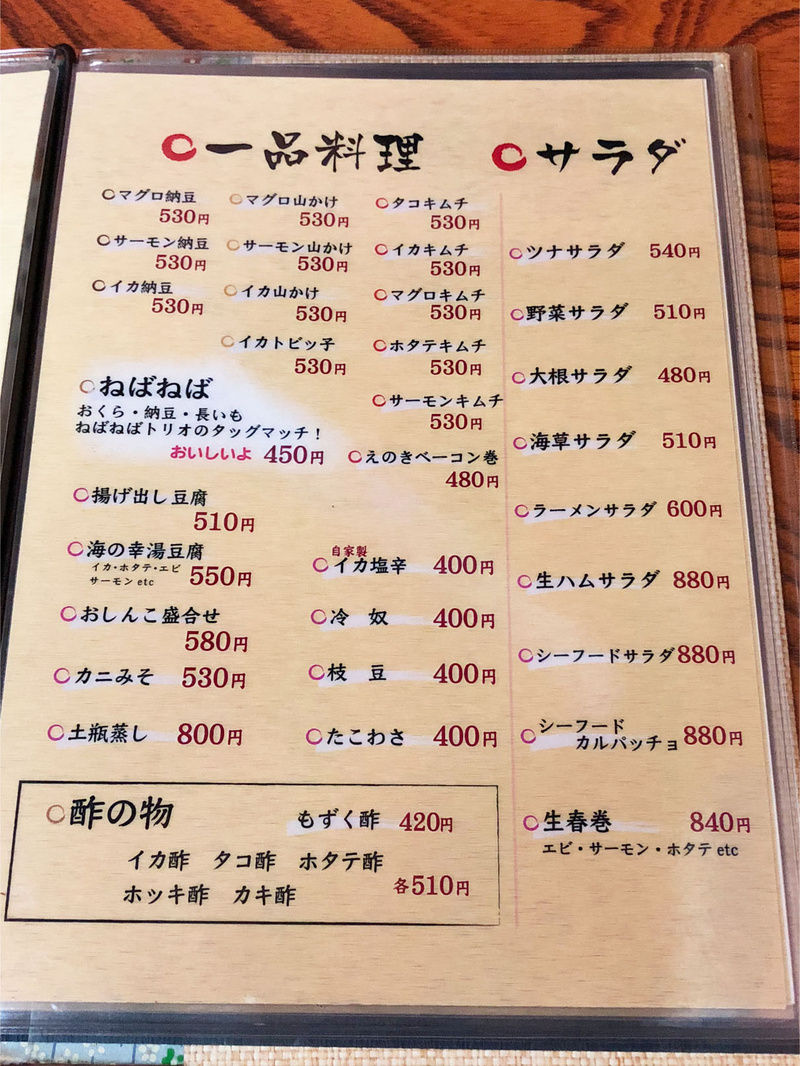 一品料理
マグロ納豆
530円
サーモン納豆
530円
イカ納豆
530円
マグロ山かけ
530円
サーモン山かけ
530円
イカ山かけ
530円
イカトビッ子
530円
タコキムチ
530円
イカキムチ
530円
マグロキムチ
530円
ホタテキムチ
530円
サーモンキムチ
530円
ねばねば
おくら・納豆・長いも
ねばねばトリオのタッグマッチ！
おいしいよ 450円
えのきベーコン巻
480円
揚げ出し豆腐
510円
海の幸湯豆腐
イカ・ホタテ・エビ
サーモン etc 550円
おしんこ盛合せ
580円
カニみそ 530円
土瓶蒸し 800円
自家製
イカ塩辛 400円
冷奴 400円
枝豆 400円
たこわさ 400円
酢の物
もずく酢 420円
イカ酢 タコ酢 ホタテ酢
ホッキ酢 カキ酢
各510円
サラダ
ツナサラダ 540円
野菜サラダ 510円
大根サラダ 480円
海草サラダ 510円
ラーメンサラダ 600円
生ハムサラダ 880円
シーフードサラダ 880円
シーフード
カルパッチョ 880円
生春巻 840円
エビ・サーモン・ホタテ etc